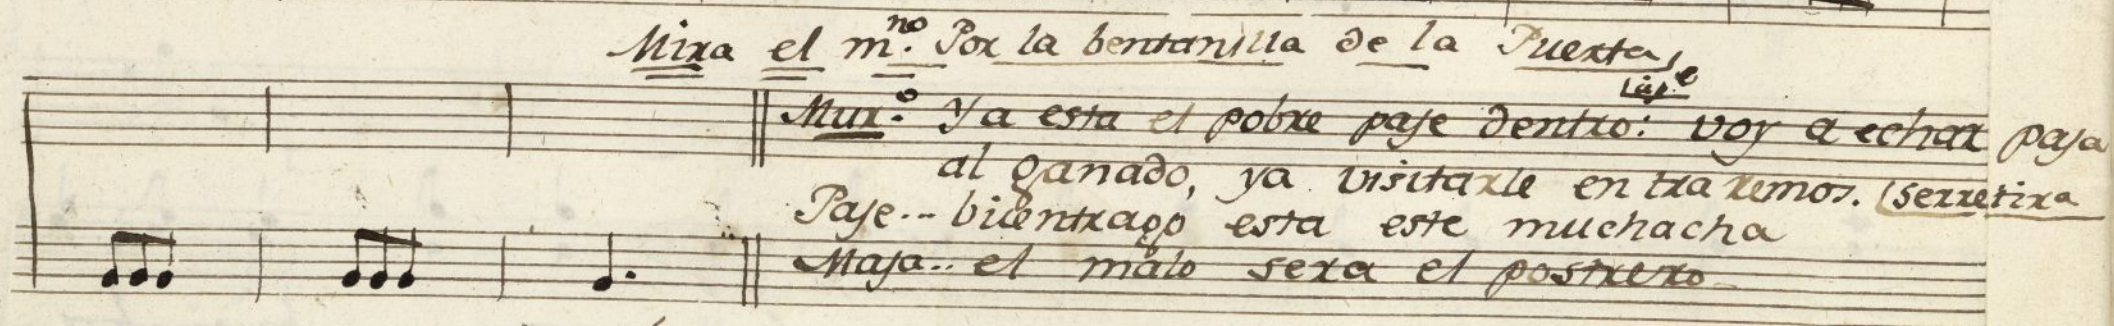 Mira el m.no Por la bentanilla de la Puerta,
Mur.o Ya esta el pobre paje dentro: voy a echar paja
al ganado, ya visitarle entraremos. (serretira
Paje... buentrago esta este muchacha
Maja.. el malo sera el postrero